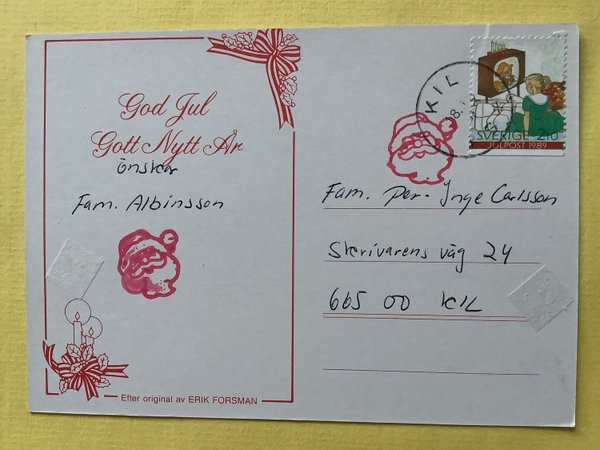 God Jul
Gott Nytt År
önskar
Fam. Albinsson
Efter original av ERIK FORSMAN
KIL
SVERIGE 210
JULPOST 1989
Fam. Per-Inge Carlsson
Skrivarens väg 24
665 00 KIL